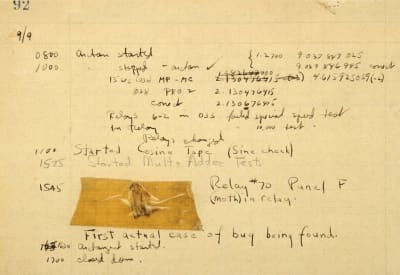 92
9/9
0800 antan started { 1.2700 9.037 847 025
1000 " stopped - antan ✓ 9.037 846 995 conect
13" uc (032) MP-MC 2.130476415 (-3) 4.615925059(-2)
(033) PRO 2 2.130476415
conect 2.130676415
Relays 6-2 in 033 failed special speed test
in relay " 10.000 test.
Relays changed
1100 Started Cosine Tape (Sine check)
1525 Started Mult + Adder Test.
1545 Relay #70 Panel F
(moth) in relay.
First actual case of bug being found.
1630 antangent started.
1700 closed down.